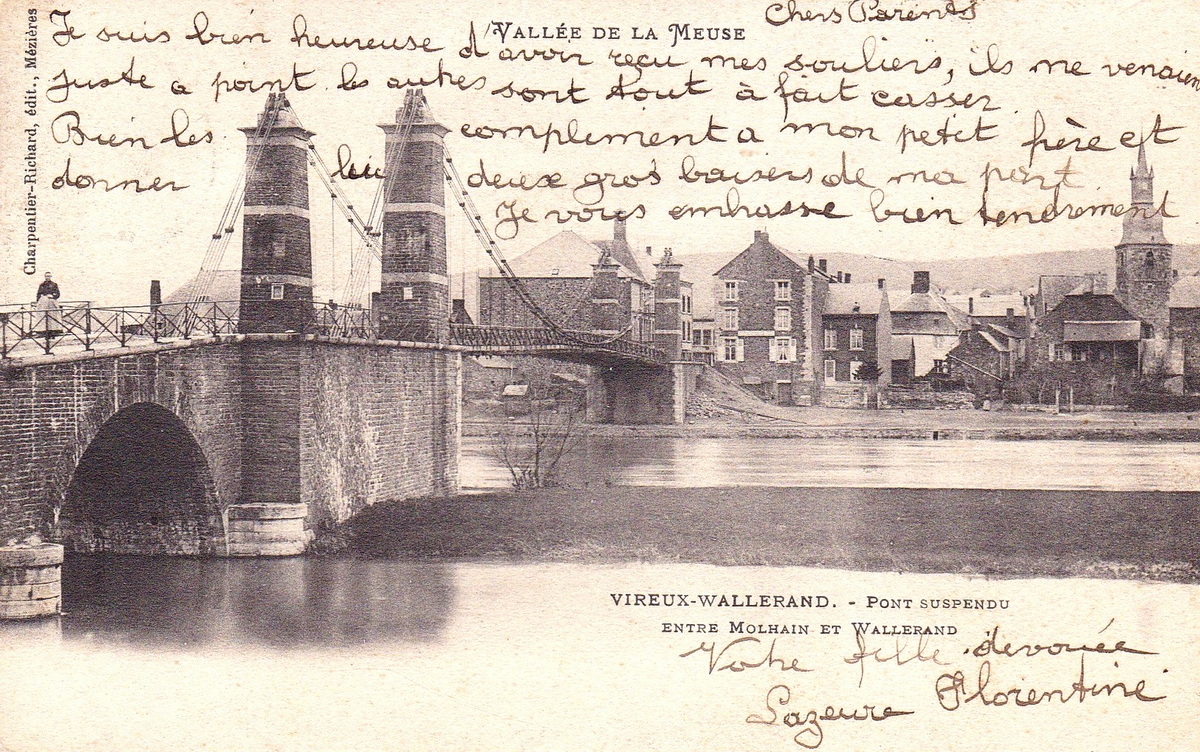 Charpentier-Richard, édit., Mézières
VALLÉE DE LA MEUSE
Chers Parents
Je suis bien heureuse d'avoir reçu mes souliers, ils me venaien
juste a point les autres sont tout à fait casser
Bien les complement a mon petit frère et
donner lui deux gros baisers de ma part
Je vous embrasse bien tendrement
VIREUX-WALLERAND. - PONT SUSPENDU
ENTRE MOLHAIN ET WALLERAND
Votre fille dévouée
Lazeure Florentine